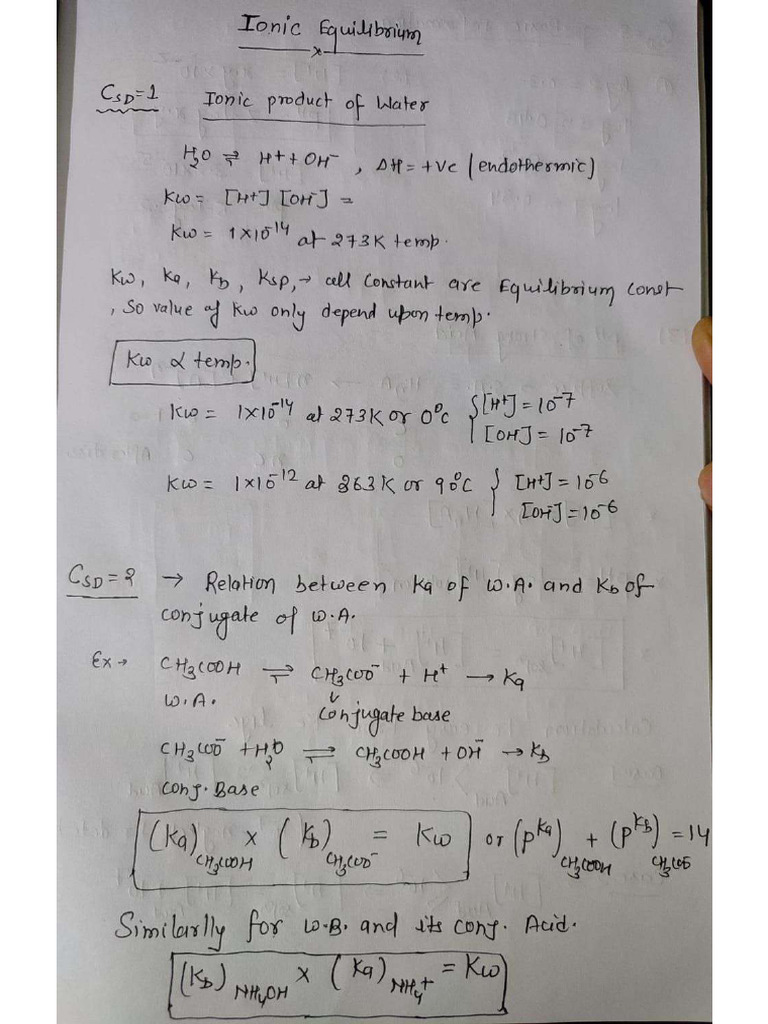 Ionic Equilibrium
CSD=1 Ionic product of Water
H2O ⇌ H+ + OH-, ΔH = +ve (endothermic)
Kw = [H+] [OH-] =
Kw = 1×10^-14 at 273K temp.
Kw, Ka, Kb, Ksp, → all constant are Equilibrium const
, So value of Kw only depend upon temp.
Kw α temp.
Kw = 1×10^-14 at 273K or 0°C { [H+] = 10^-7
[OH-] = 10^-7
Kw = 1×10^-12 at 363K or 90°C { [H+] = 10^-6
[OH-] = 10^-6
CSD=2 → Relation between Ka of W.A. and Kb of
conjugate of W.A.
Ex → CH3COOH ⇌ CH3COO- + H+ → Ka
W.A. Conjugate base
CH3COO- + H2O ⇌ CH3COOH + OH- → Kb
Conj. Base
(Ka)CH3COOH × (Kb)CH3COO- = Kw or (pKa)CH3COOH + (pKb)CH3COO = 14
Similarlly for W.B. and its conj. Acid.
(Kb)NH4OH × (Ka)NH4+ = Kw